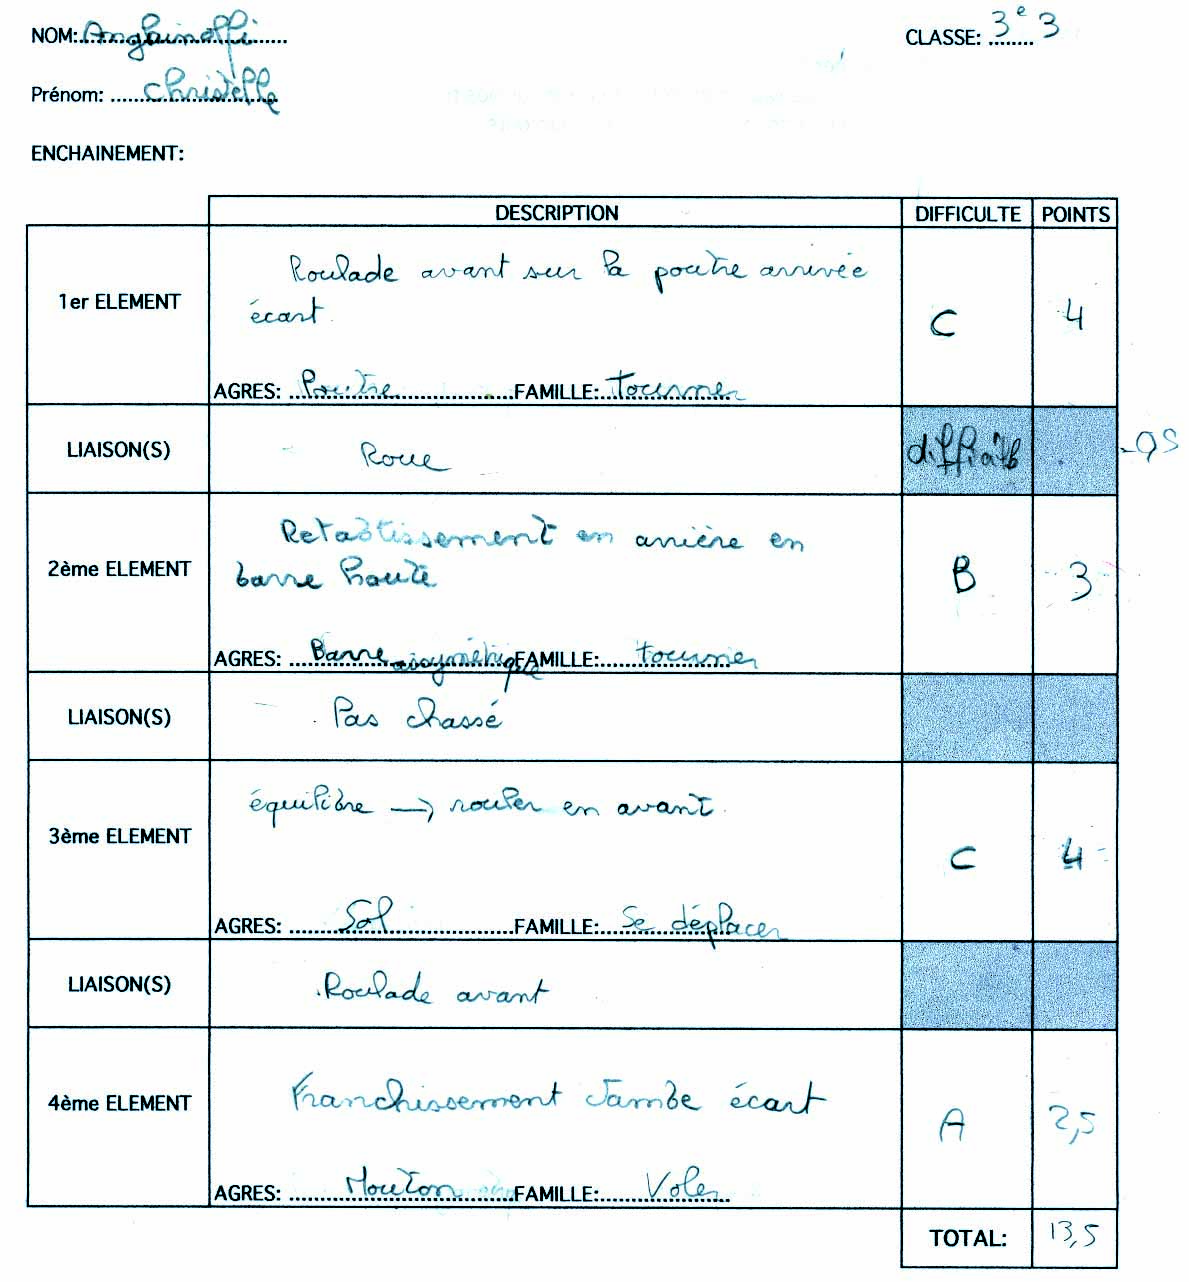 NOM: Anghinolfi
CLASSE: 3e 3
Prénom: Christelle
ENCHAINEMENT:
DESCRIPTION DIFFICULTE POINTS
1er ELEMENT
Roulade avant sur la poutre arrivée
écart.
C 4
AGRES: Poutre FAMILLE: Tourner
LIAISON(S) Roue
2ème ELEMENT
Retablissement en arrière en
barre haute
B 3
AGRES: Barre assymétrique FAMILLE: tourner
LIAISON(S) Pas chassé
3ème ELEMENT
équilibre → rouler en avant.
C 4
AGRES: Sol FAMILLE: Se déplacer
LIAISON(S) Roulade avant
4ème ELEMENT
Franchissement Jambe écart
A 2,5
AGRES: Mouton FAMILLE: Voler
TOTAL: 13,5